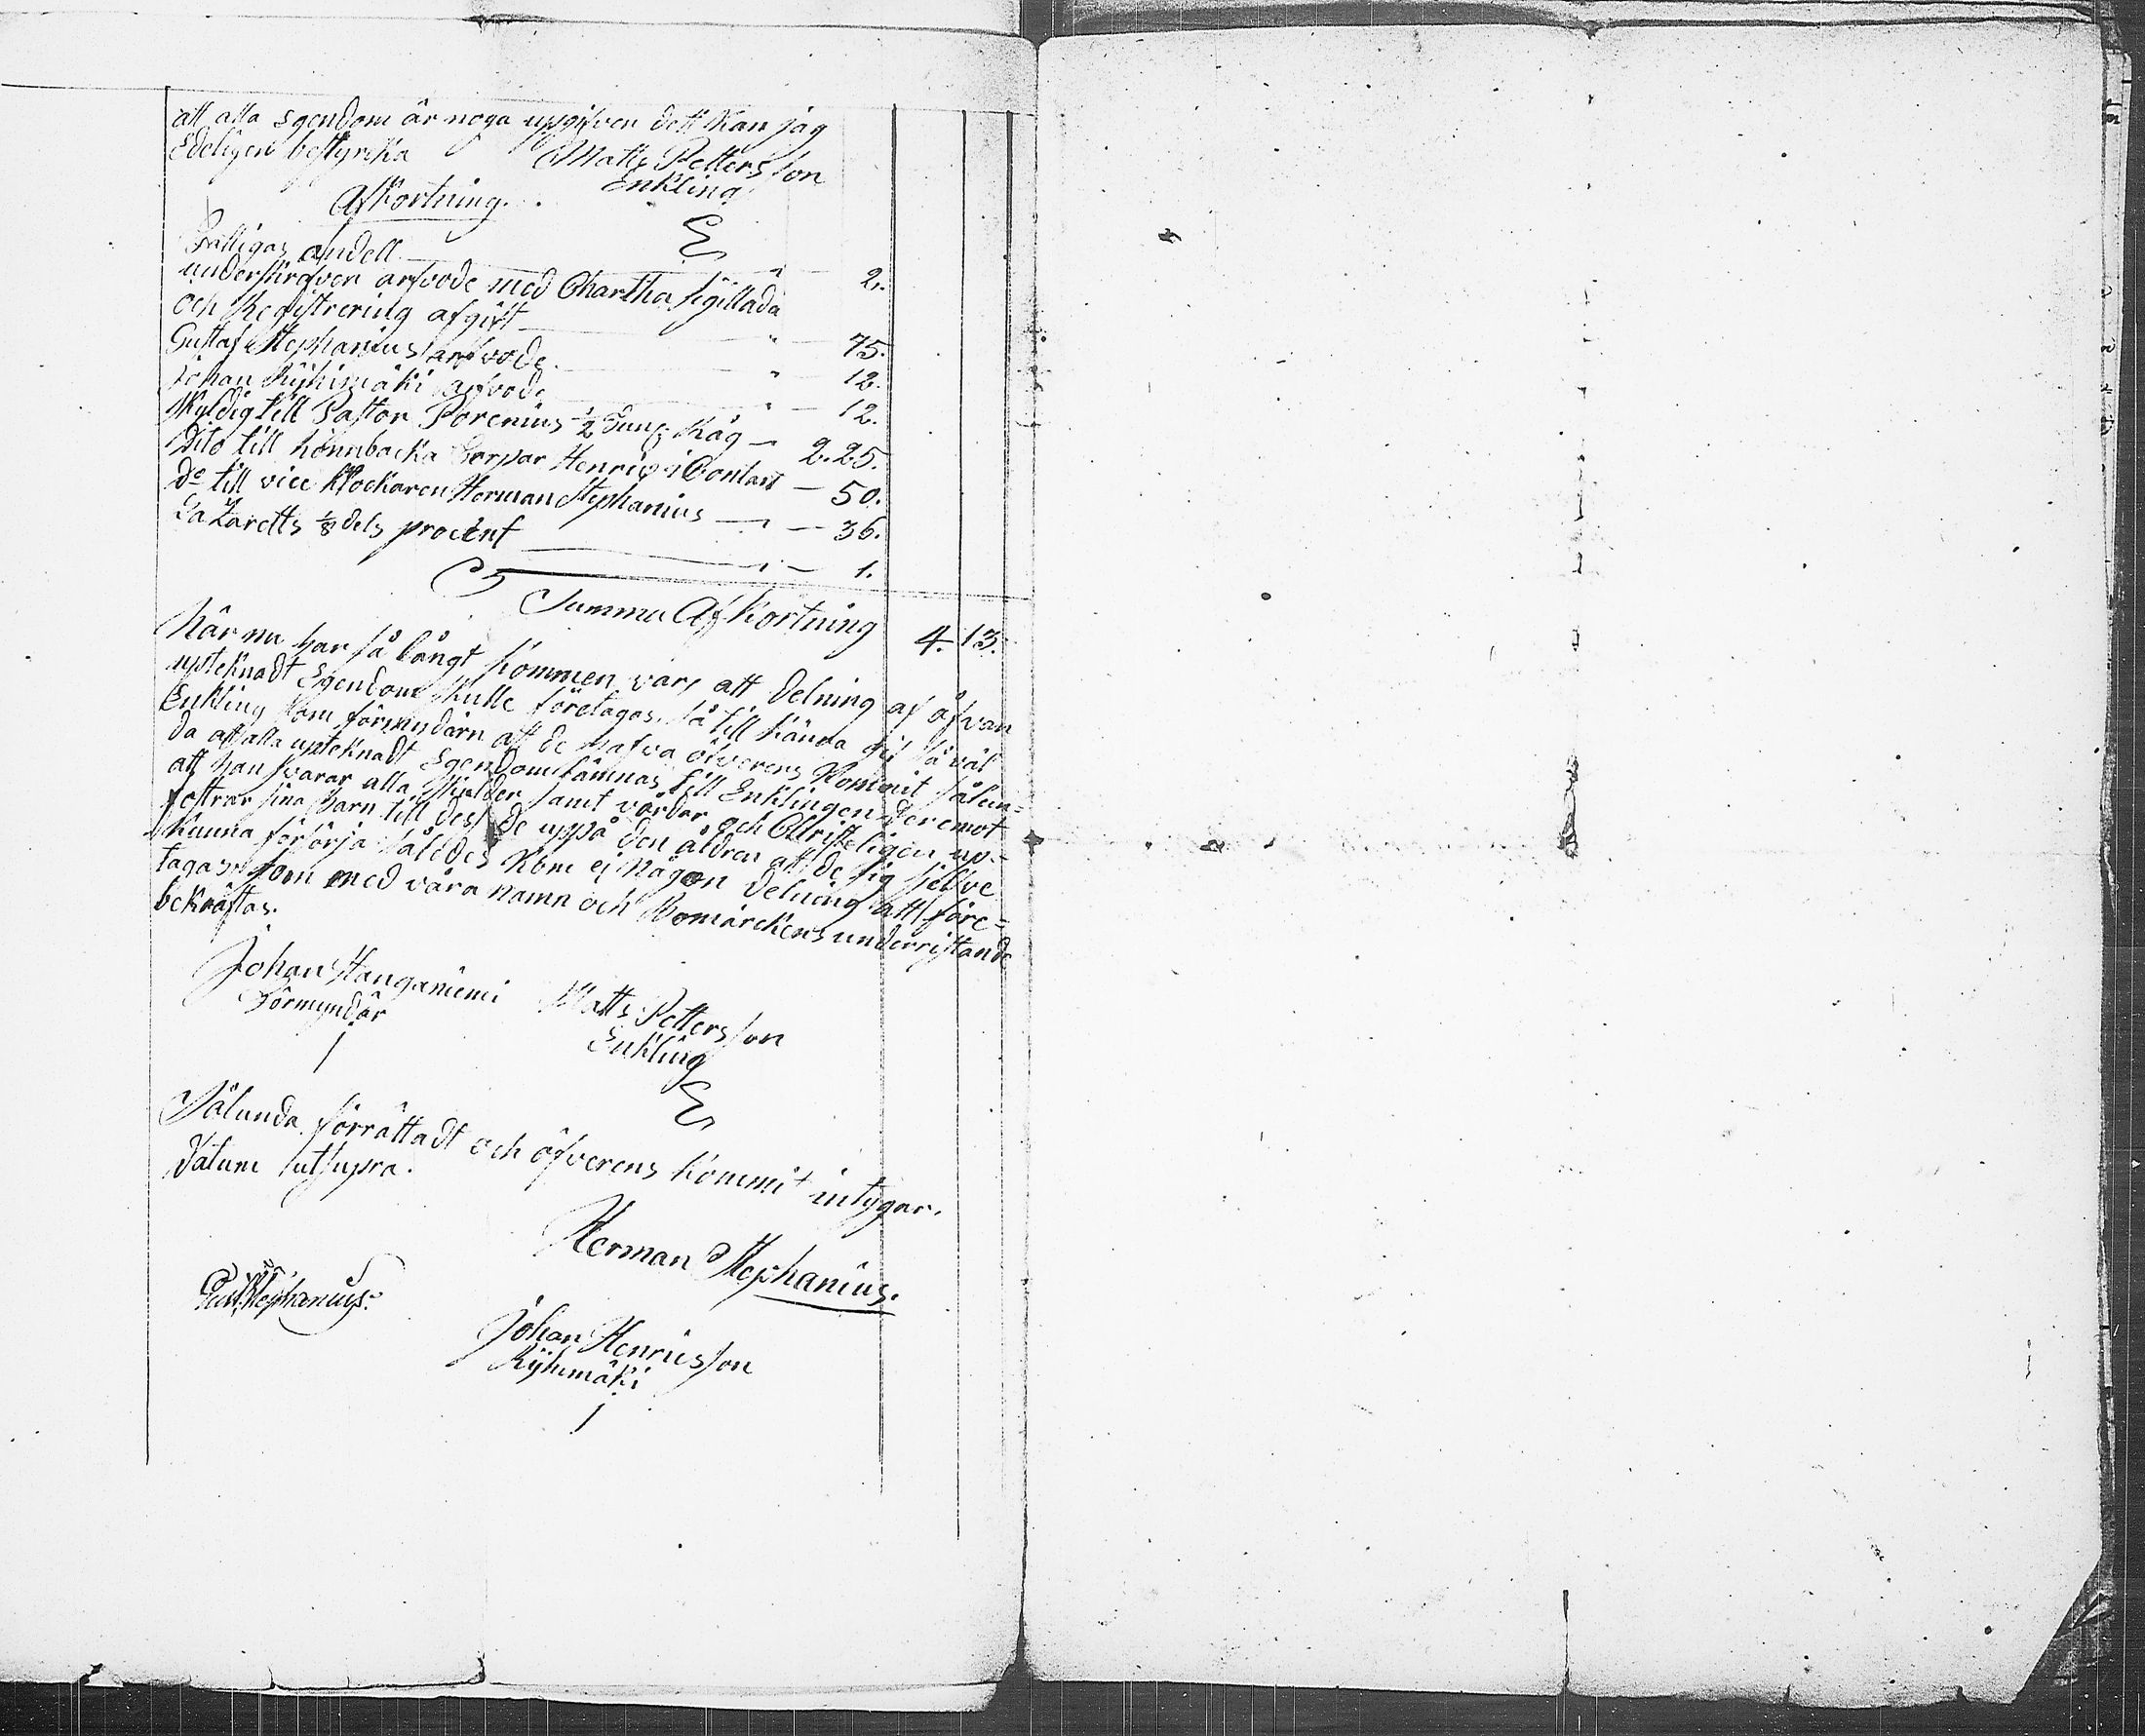 att alla Egendom är noga upgifven dett kan jag
Edeligen bestyrka Matts Pettersson
Enkling
Afkortning.
E
Fattigas andell " 2.
underskrefven arfvode med Chartha sigillada
och Registrering afgift " 75.
Gustaf Stephanius arfvode " 12.
Johan Kyhimäki arfvode " 12.
Skyldig till Pastor Porenius ½ Tun: Råg 2. 25.
Dito till Henricj 50.
Do till vice Klockaren Herman Stephanius " 36.
Lazaretts ⅛ dels procent " 1.
Summa Afkortning 4. 13.
När nu har så långt kommen vars att delning af åfvan
upteknadt Egendom skulle företagas, så till känna gif så väl
Enkling som förmyndarn att de hafva öfverens kommit sålun=
da att alla upteknadt Egendom lämnas till Enklingen deremot
att han svarar alla skulder samt vårdar och Christeligen up=
fostrar sina Barn till dess de uppå den åldren att de sig sjelfve
kunna försörja således kom ej någon delning att före=
tagas, som med våra namn och Bomärckens underristande
bekräftas.
Johan Hanganiemi Matts Pettersson
Förmyndar Enkling
E
Sålunda förrättadt och öfverens kommit intygar.
Datum ut supra.
Herman Stephanius.
Gust. Stephanius
Johan Henricsson
Kyhimäki